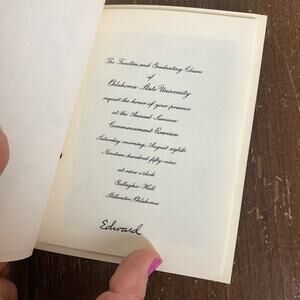 The Faculties and Graduating Classes
of
Oklahoma State University
request the honor of your presence
at the Annual Summer
Commencement Exercises
Saturday morning, August eighth
Nineteen hundred fifty-nine
at nine o'clock
Gallagher Hall
Stillwater, Oklahoma
Edward